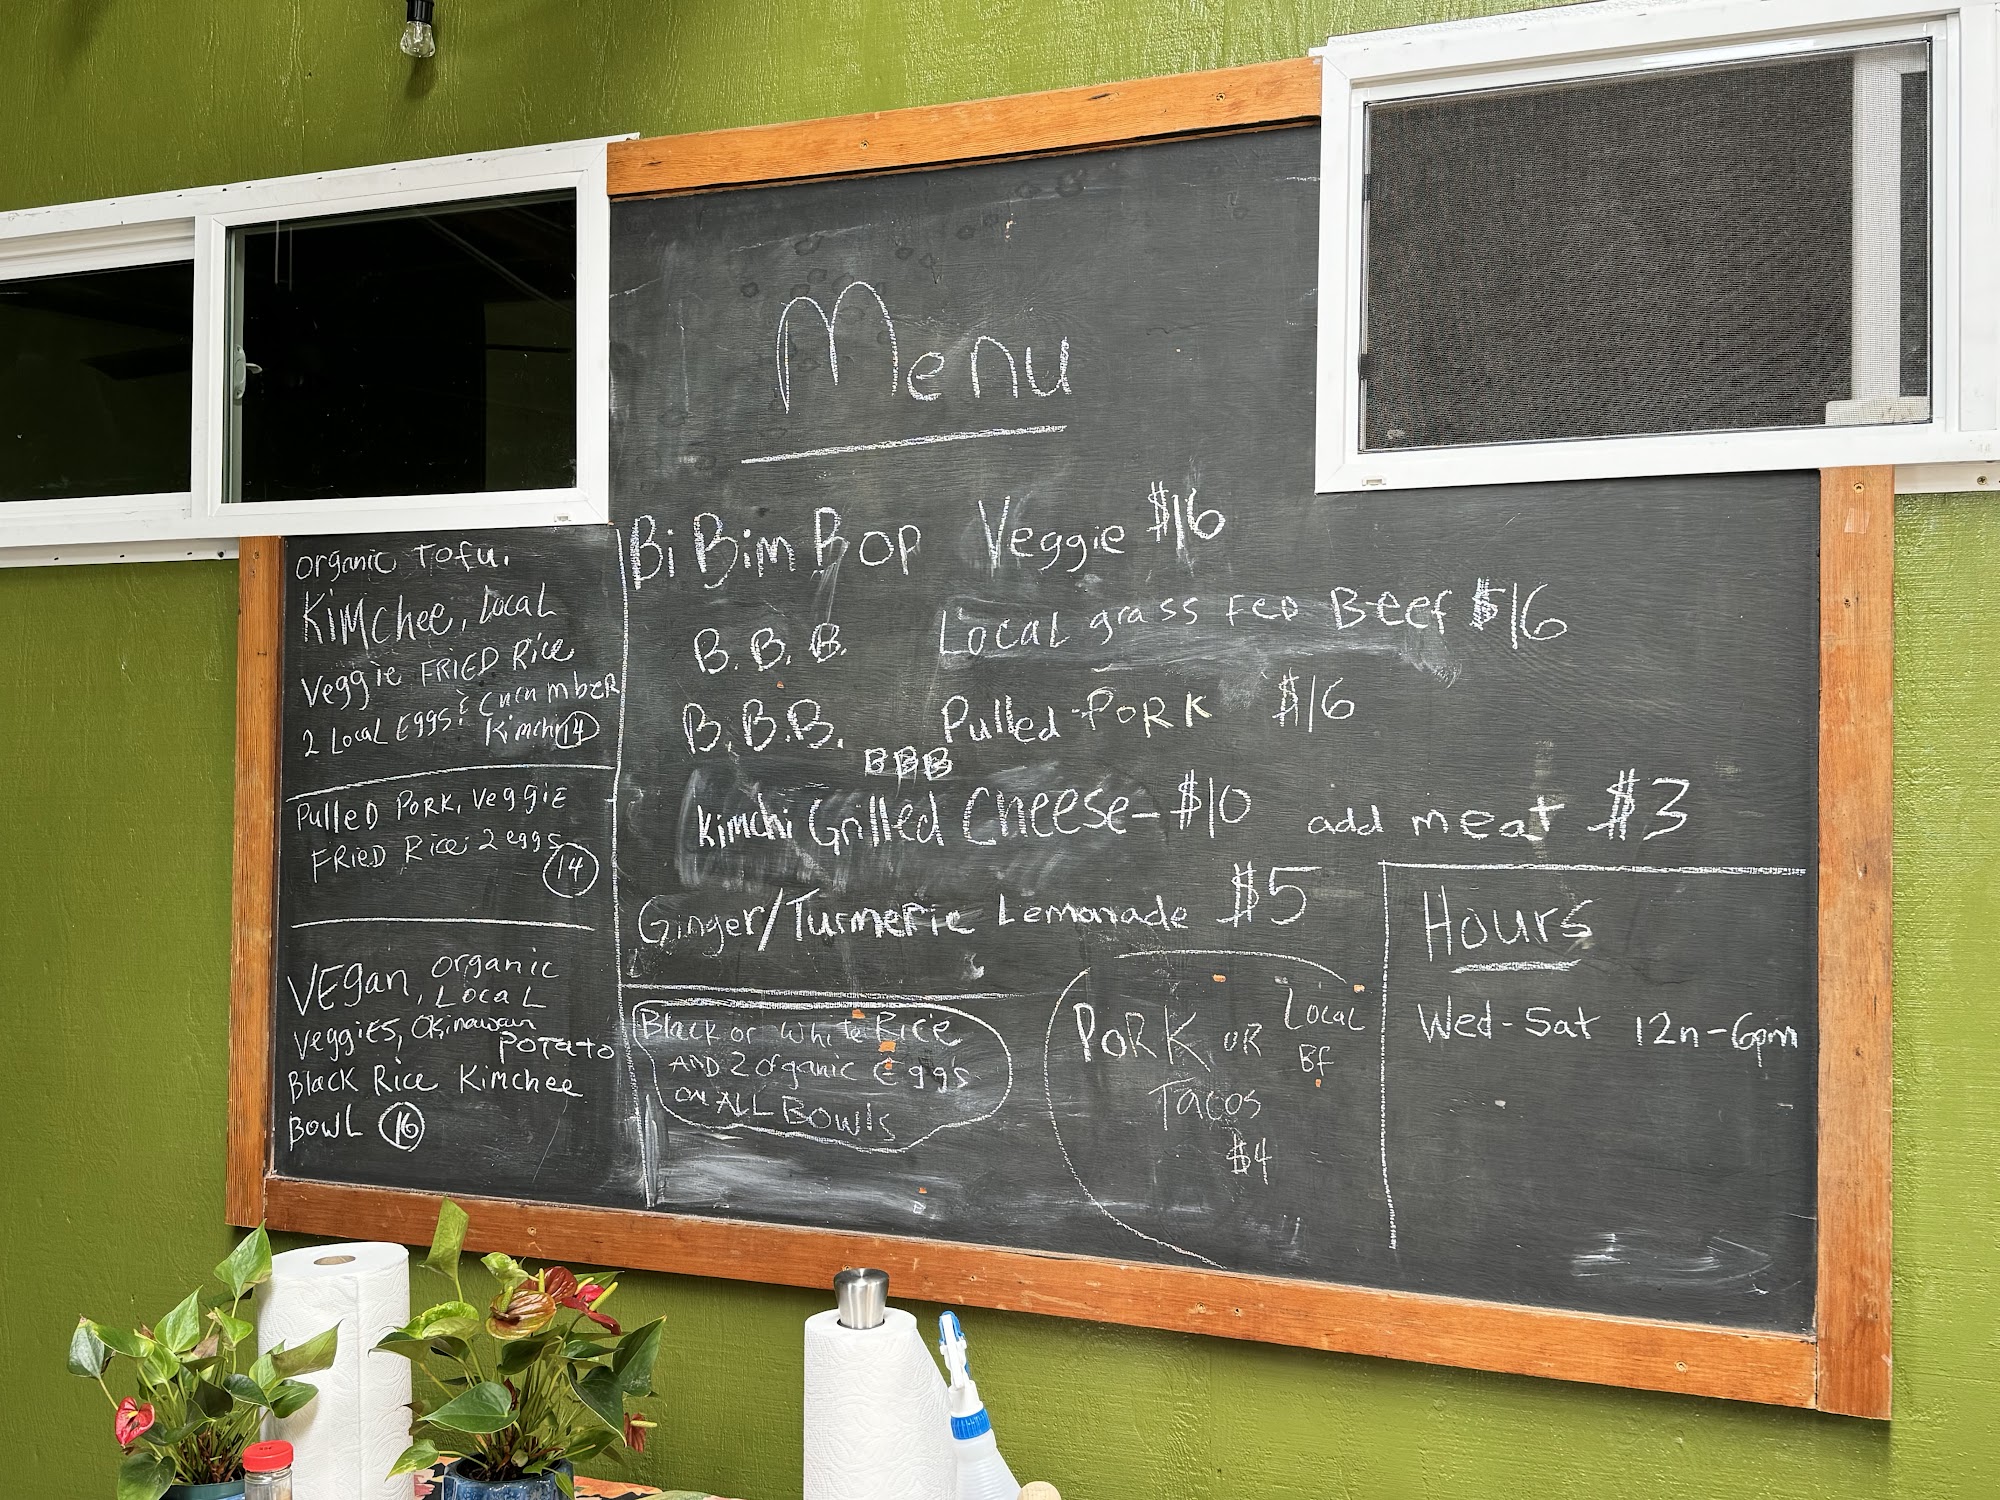 Menu
organic Tofu.
Kimchee, Local
Veggie FRIED Rice
2 Local Eggs & Cucumber
Kimchi 14
Pulled Pork, Veggie
FRIED Rice 2 eggs
14
VEgan, organic
Local
Veggies, Okinawan
Potato
Black Rice Kimchee
Bowl 16
Bi Bim Bop Veggie $16
B.B.B. Local grass FED Beef $16
B.B.B. Pulled-Pork $16
BBB
Kimchi Grilled Cheese-$10 add meat $3
Ginger/Turmeric Lemonade $5
Black or White Rice
AND 2 organic Eggs
on ALL Bowls
Pork or Local
Bf
Tacos
$4
Hours
Wed-Sat 12n-6pm